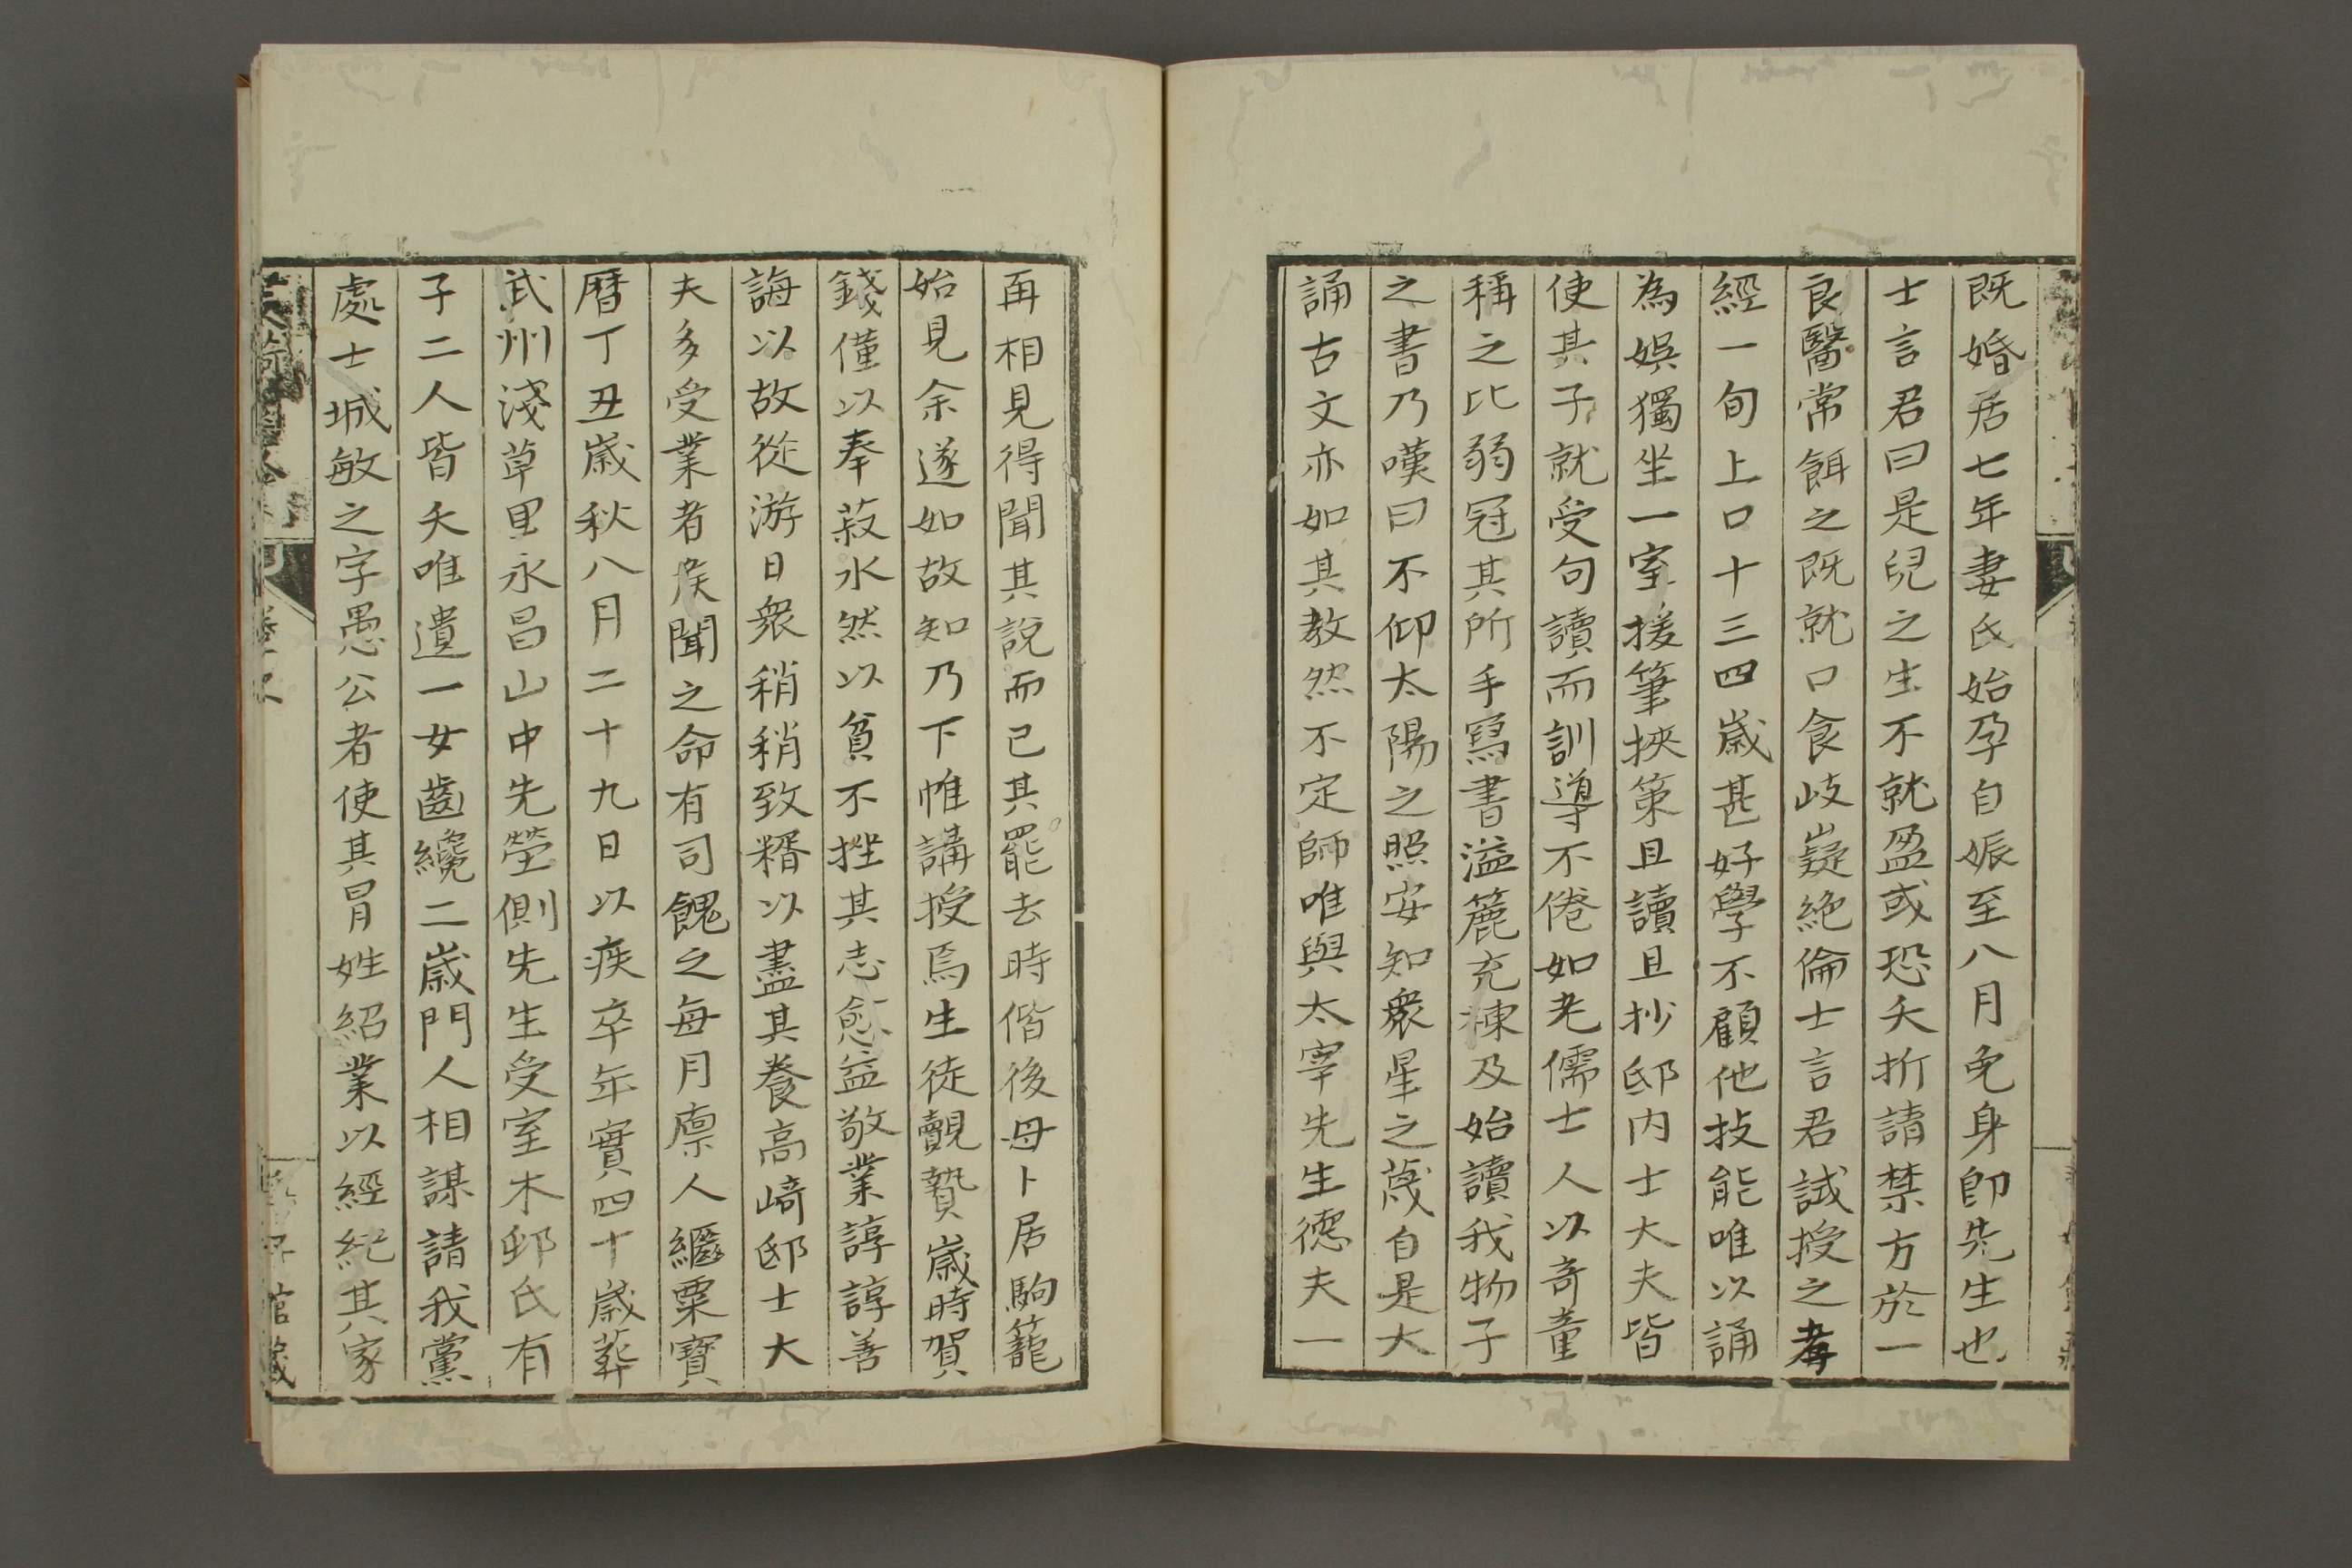 既婚居七年妻氏始孕自娠至八月免身卽先生也
士言君曰是兒之生不就盈或恐夭折請禁方於一
良醫常餌之既就口食岐嶷絶倫士言君試授之孝
經一旬上口十三四歳甚好學不顧他技能唯以誦
為娯獨坐一室援筆挾策且讀且抄邸内士大夫皆
使其子就受句讀而訓導不倦如老儒士人以奇童
稱之比弱冠其所手寫書溢簏充棟及始讀我物子
之書乃嘆曰不仰太陽之照安知衆星之蔑自是大
誦古文亦如其教然不定師唯與太宰先生德夫一
再相見得聞其說而已其罷去時偕後母卜居駒籠
始見余遂如故知乃下帷講授焉生徒覿贄歳時賀
錢僅以奉菽水然以貧不挫其志愈益敬業諄諄善
誨以故從游日衆稍稍致糈以盡其養高﨑邸士大
夫多受業者矦聞之命有司餽之毎月廩人繼粟寶
暦丁丑歳秋八月二十九日以疾卒年實四十歳葬
武州淺草里永昌山中先塋側先生受室木邨氏有
子二人皆夭唯遺一女齒纔二歳門人相謀請我黨
處士城敏之字愚公者使其冐姓紹業以經紀其家
館藏